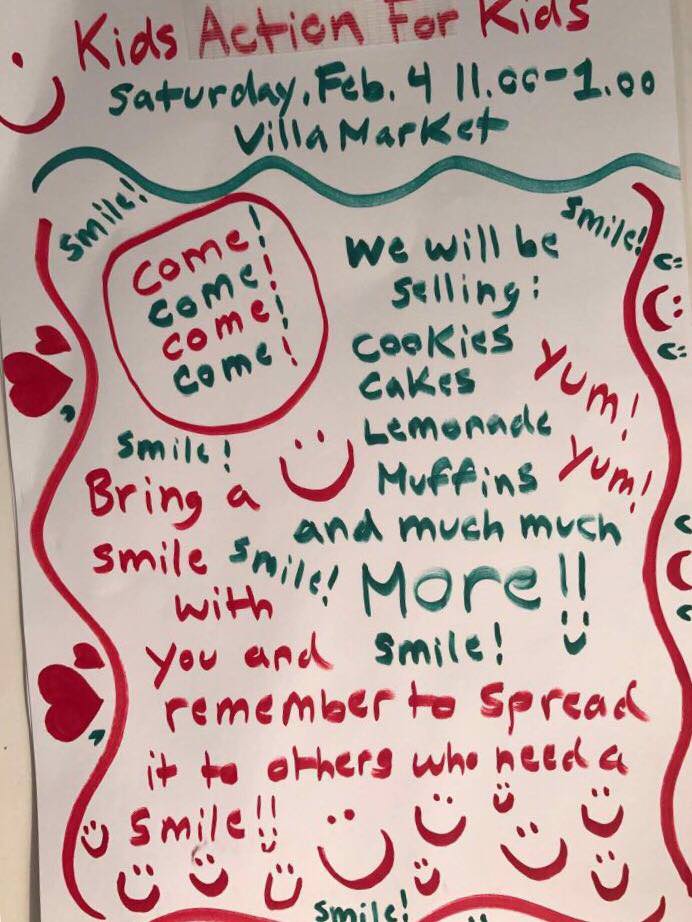 Kids Action For Kids
Saturday, Feb. 4 11.00-1.00
Villa Market
Smile!
Smile!
Come!
come!
come!
come!
We will be
selling:
cookies
cakes
Lemonade
Muffins
and much much
More!!
Yum!
Yum!
Smile!
Bring a
smile
with
you and
remember to spread
it to others who need a
smile!!
Smile!
Smile!
Smile!